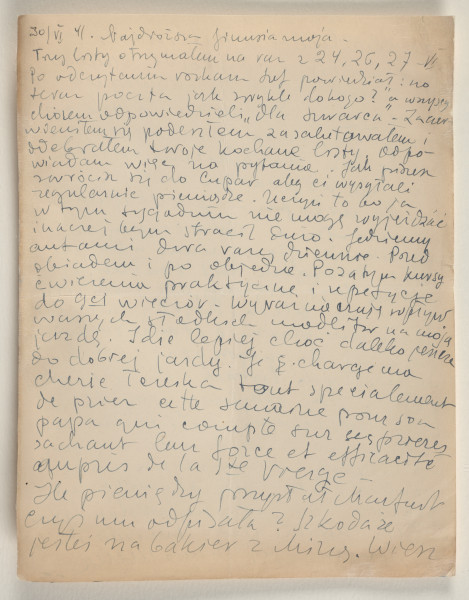 30/VI 41. Najdroższa Zinusia moja.
Trzy listy otrzymałem na raz z 24, 26, 27 VI
Po odczytaniu rozkazu szef powiedział: no
teraz poczta jak zwykle do kogo? a wszyscy
chórem odpowiedzieli „dla
podszedłem zasalutowałem i
odebrałem twoje kochane listy, odpo-
wiadam więc na pytania. Jak piszesz
zwróć się do Cupar aby ci wysyłali
regularnie pieniądze. Uczyń to bo ja
w tym tygodniu nie mogę wyjeżdżać
inaczej bym stracił dużo. Jeździmy
autami dwa razy dziennie. Przed
obiadem i po obiedzie. Poza tym kursy
ćwiczenia praktyczne i repetycje
do 9ej wieczór. Wyraźnie czuję wpływ
waszych słodkich modlitw na moją
jazdę. Idzie lepiej choć daleko jeszcze
do dobrej jazdy. Je charge ma
cherie Tereska tout specialement
de prier cette semaine pour son
papa qui compte sur ses prieres
sachant leur force et efficacité
aupres de la Ste Vierge
Ile pieniędzy przysłał
czyś mu odpisała? Szkoda że
jesteś na bakier z Wiesz